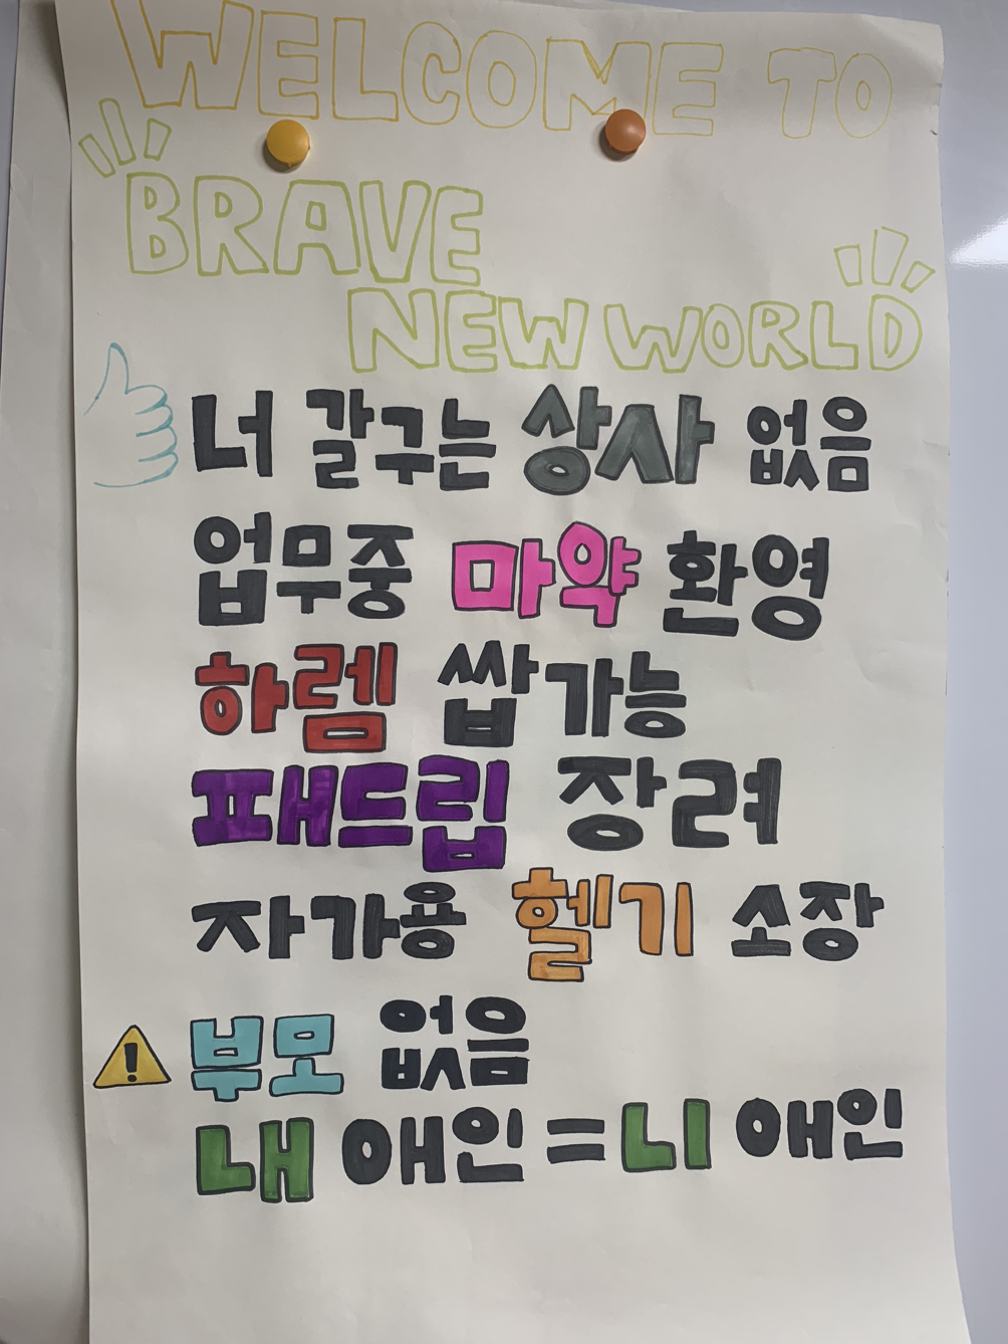 WELCOME TO
BRAVE
NEW WORLD
너 갈구는 상사 없음
업무중 마약 환영
하렘 쌉가능
패드립 장려
자가용 헬기 소장
부모 없음
내 애인 = 니 애인